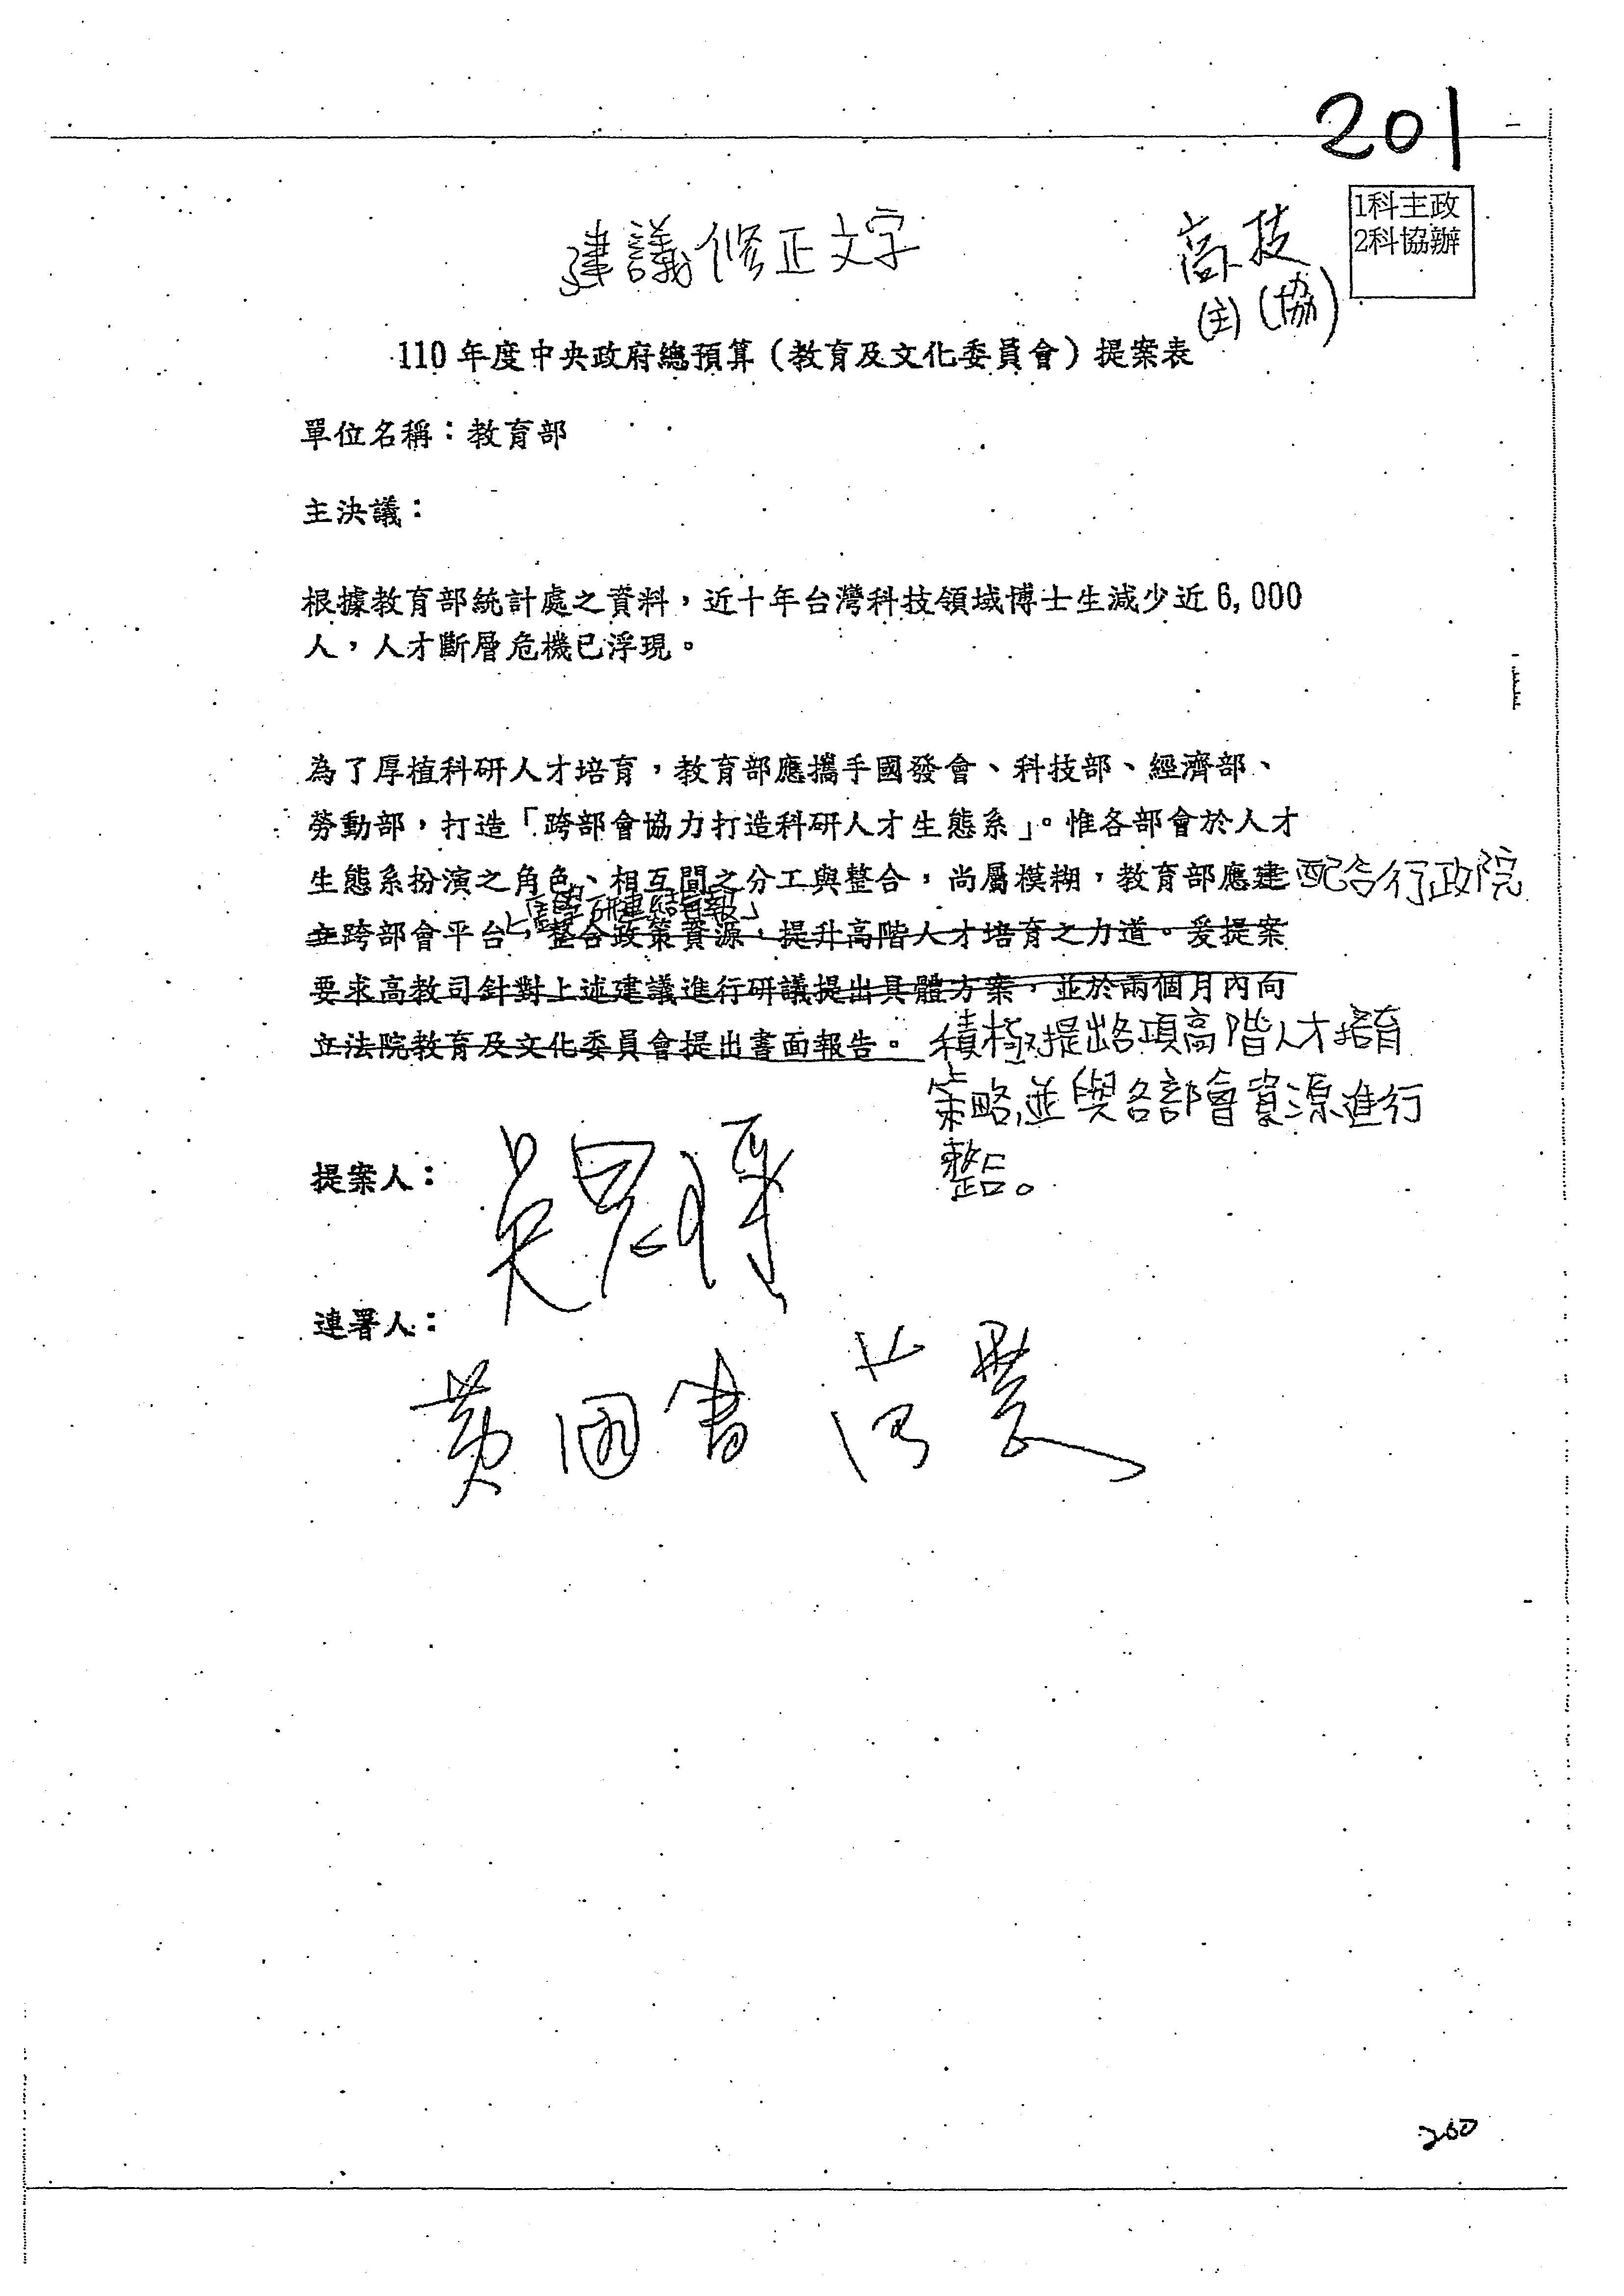 201
建議修正文字
高技
(主)(協)
1科主政
2科協辦
110年度中央政府總預算（教育及文化委員會）提案表
單位名稱：教育部
主決議：
根據教育部統計處之資料，近十年台灣科技領域博士生減少近6,000
人，人才斷層危機已浮現。
為了厚植科研人才培育，教育部應攜手國發會、科技部、經濟部、
勞動部，打造「跨部會協力打造科研人才生態系」。惟各部會於人才
生態系扮演之角色、相互間之分工與整合，尚屬模糊，教育部應建 配合行政院
「產學研連結會報」
立跨部會平台，整合政策資源，提升高階人才培育之力道。爰提案
要求高教司針對上述建議進行研議提出具體方案，並於兩個月內向
立法院教育及文化委員會提出書面報告。 積極提出各項高階人才培育
策略，並與各部會資源進行
整合。
提案人：
吳思瑤
連署人：
黃國書
260